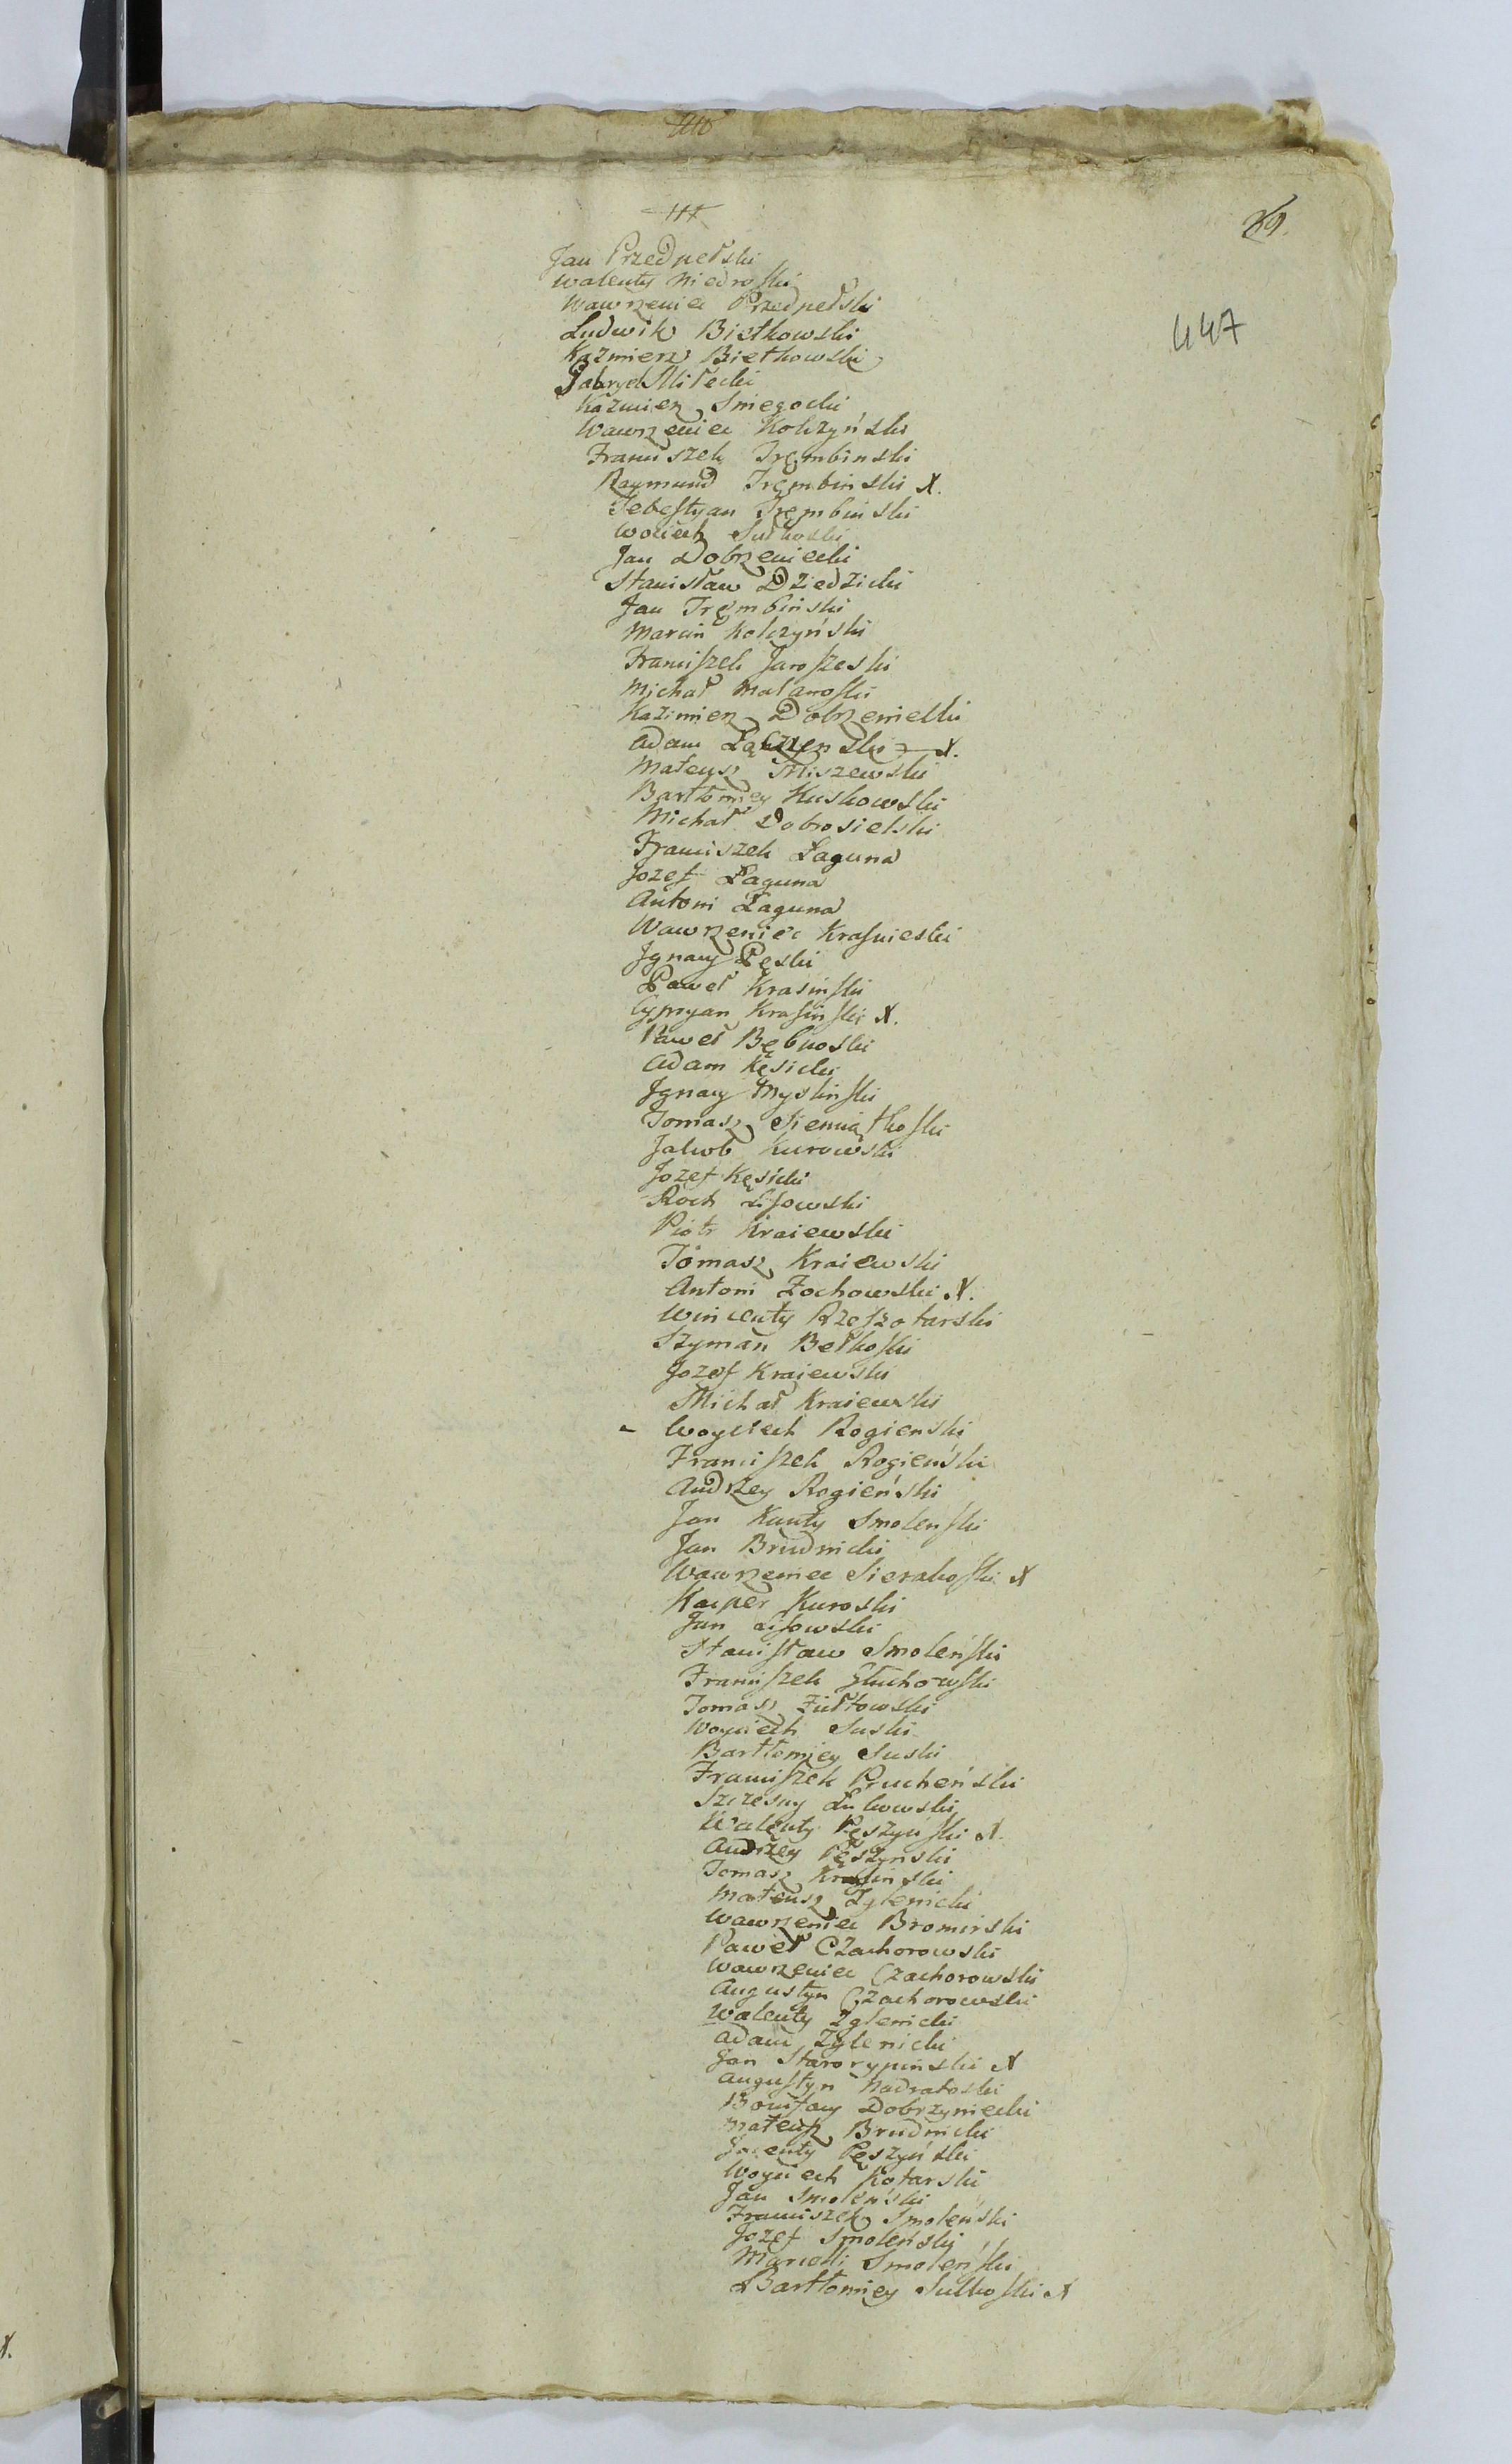 89.
447
Jan Przedpełski
Walenty Niedroski
Wawrzeniec Przedpełski
Ludwik Bietkowski
Kazmierz Bietkowski
Gabryel Miłecki
Kazmierz Sniegocki
Wawrzeniec Kolczyński
Franciszek Trembinski
Raymund Trembinski X.
Sebestyan Trembinski
Woiciech Sułkoski
Jan Dobrzeniecki
Stanisław Dziedzicki
Jan Trembiński
Marcin Kolczyński
Franciszek Jaroszeski
Michał Malanoski
Kazimierz Dobrzeniecki
Adam Łączyenski X.
Mateusz Miszewski
Bartłomiey Kuskowski
Michał Dobrosielski
Franciszek Łaguna
Jozef Łaguna
Antoni Łaguna
Wawrzeniec Krasnieski
Jgnacy Pęski
Paweł Krasinski
Cypryan Krasinski X.
Paweł Bębnoski
Adam Kęsicki
Jgnacy Myslinski
Tomasz Siemiątkoski
Jakob Kurowski
Jozef Kęsicki
Roch Lisowski
Piotr Kraiewski
Tomasz Kraiewski
Antoni Żochowski X.
Wincenty Rzeszotarski
Szyman Bełkoski
Jozef Kraiewski
Michał Kraiewski
Woyciech Rogienski
Franciszek Rogieński
Andrzey Rogieński
Jan Kanty Smolenski
Jan Brudnicki
Wawrzeniec Sierakoski X
Kacper Kuroski
Jan Lisowski
Stanisław Smoleński
Franciszek Głuchowski
Tomasz Ziułtowski
Woyciech Suski
Bartłomiey Suski
Franciszek Prucheński
Szczesny Łukowski
Walenty Pęszyński X.
Andrzey Pęszynski
Tomasz Krasinski
Mateusz Zglenicki
Wawrzeniec Bromirski
Paweł Czachorowski
Wawrzeniec Czachorowski
Augustyn Czachorowski
Walenty Zglenicki
Adam Zglenicki
Jan Starorypinski X
Augustyn Nadratoski
Bonifacy Dobrzyniecki
Mateusz Brudnicki
Jacenty Pęszyński
Woyciech Kotarski
Jan Smoleński
Franciszek Smoleński
Jozef Smoleński
Marcelli Smoleński
Bartłomiey Sulkoski X